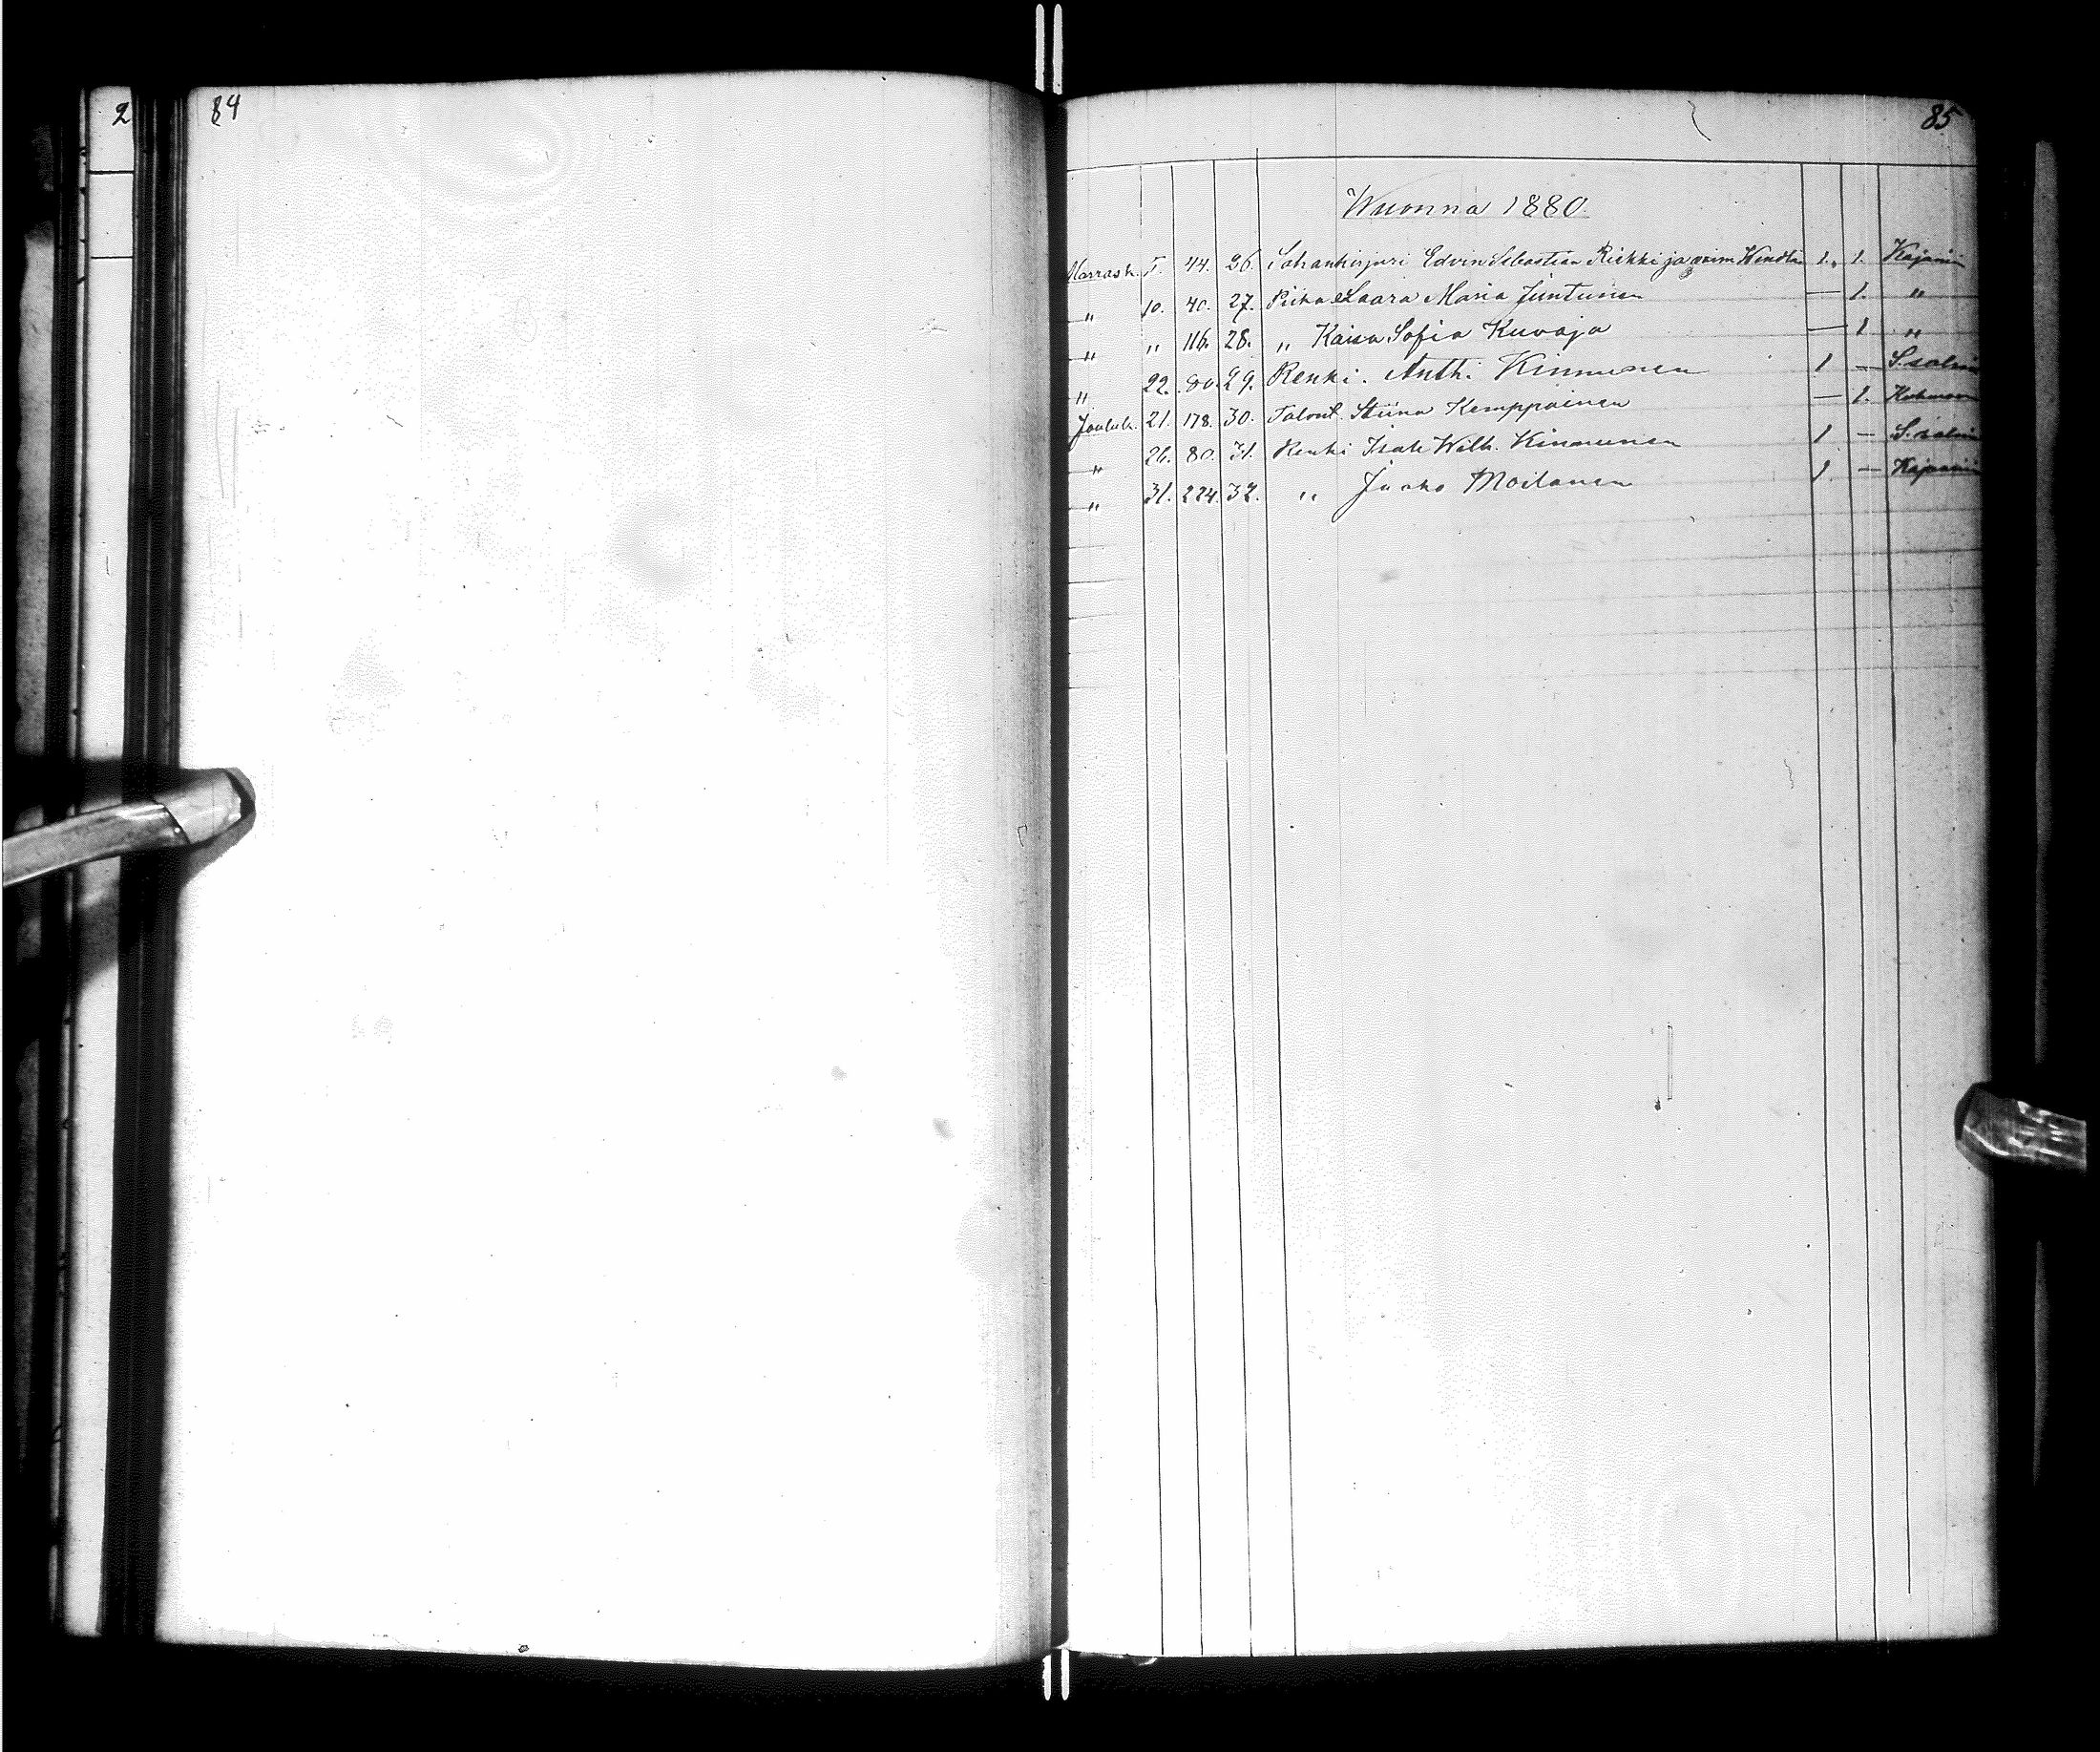 2
84
85
Wuonna 1880.
Marrask. 5. 44. 26. Sahankirjuri Edvin Sebastian Riekki ja vaim 1. 1. Kajaani
" 10. 40. 27. Piika Laara Maria Juntunen — 1. "
" " 116. 28. " Kaisa Sofia Kuvaja — 1 "
" 22. 80. 29. Renki. Antti Kinnunen 1 — S.salmi
Jouluk. 21. 178. 30. Talont. Stiina Kemppainen — 1. Kuhmoon
" 26. 80. 31. Renki Isak Wilh. Kinnunen 1 — S.salmi
" 31. 224. 32. " Jaako Moilanen 1. — Kajaani